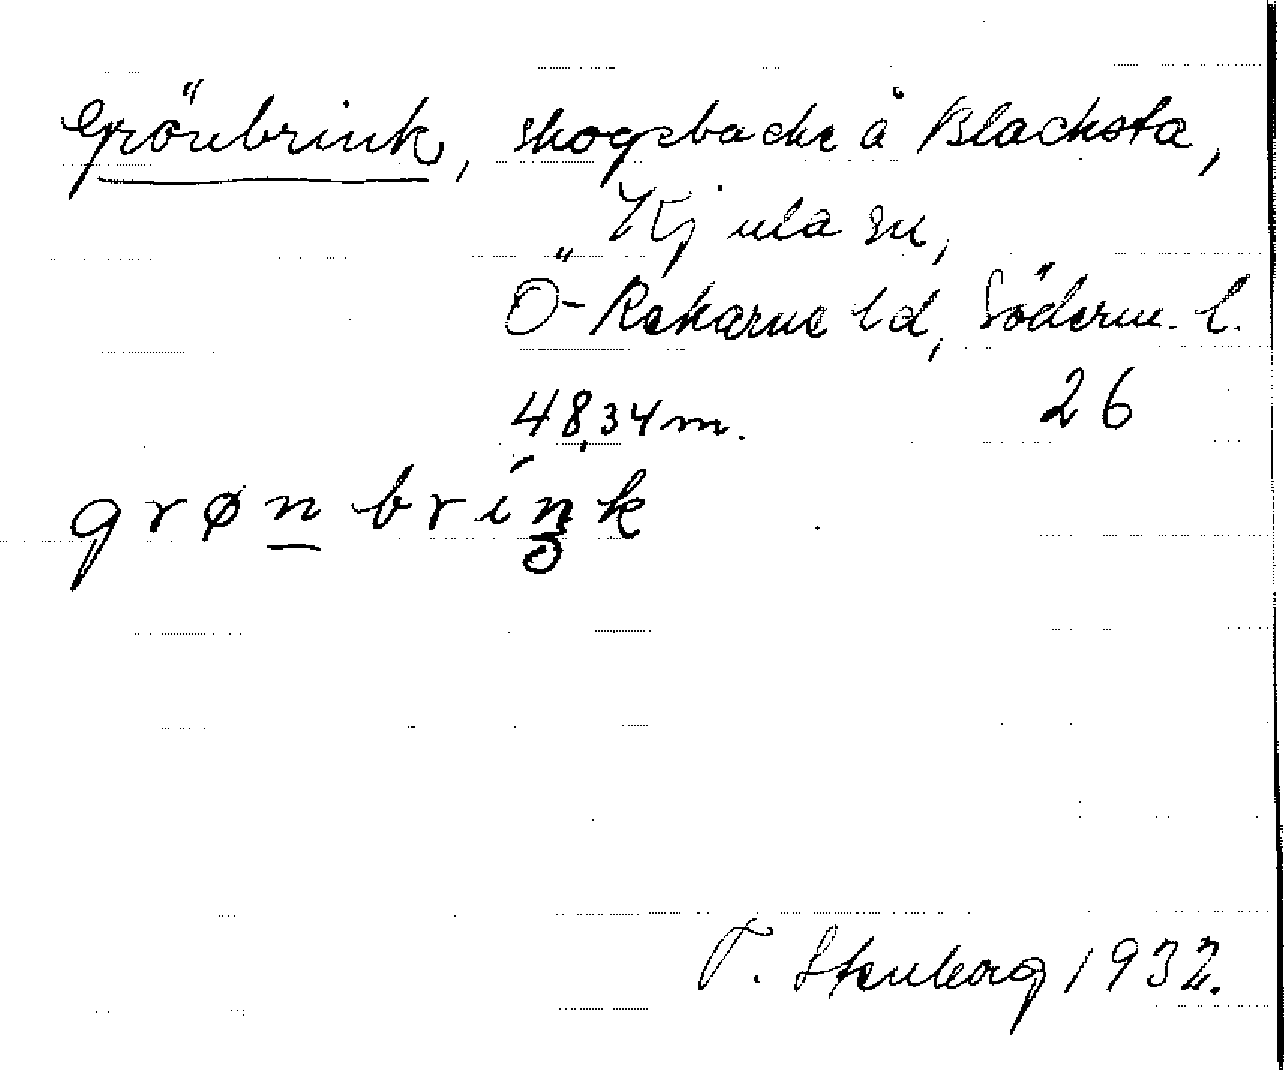 Grönbrink, skogsbacke å Blacksta,
Kjula sn,
Ö-Rekarne hd, Söderm. l.
48,34 m. 26
grøn bríŋk
T. Stenborg 1932.